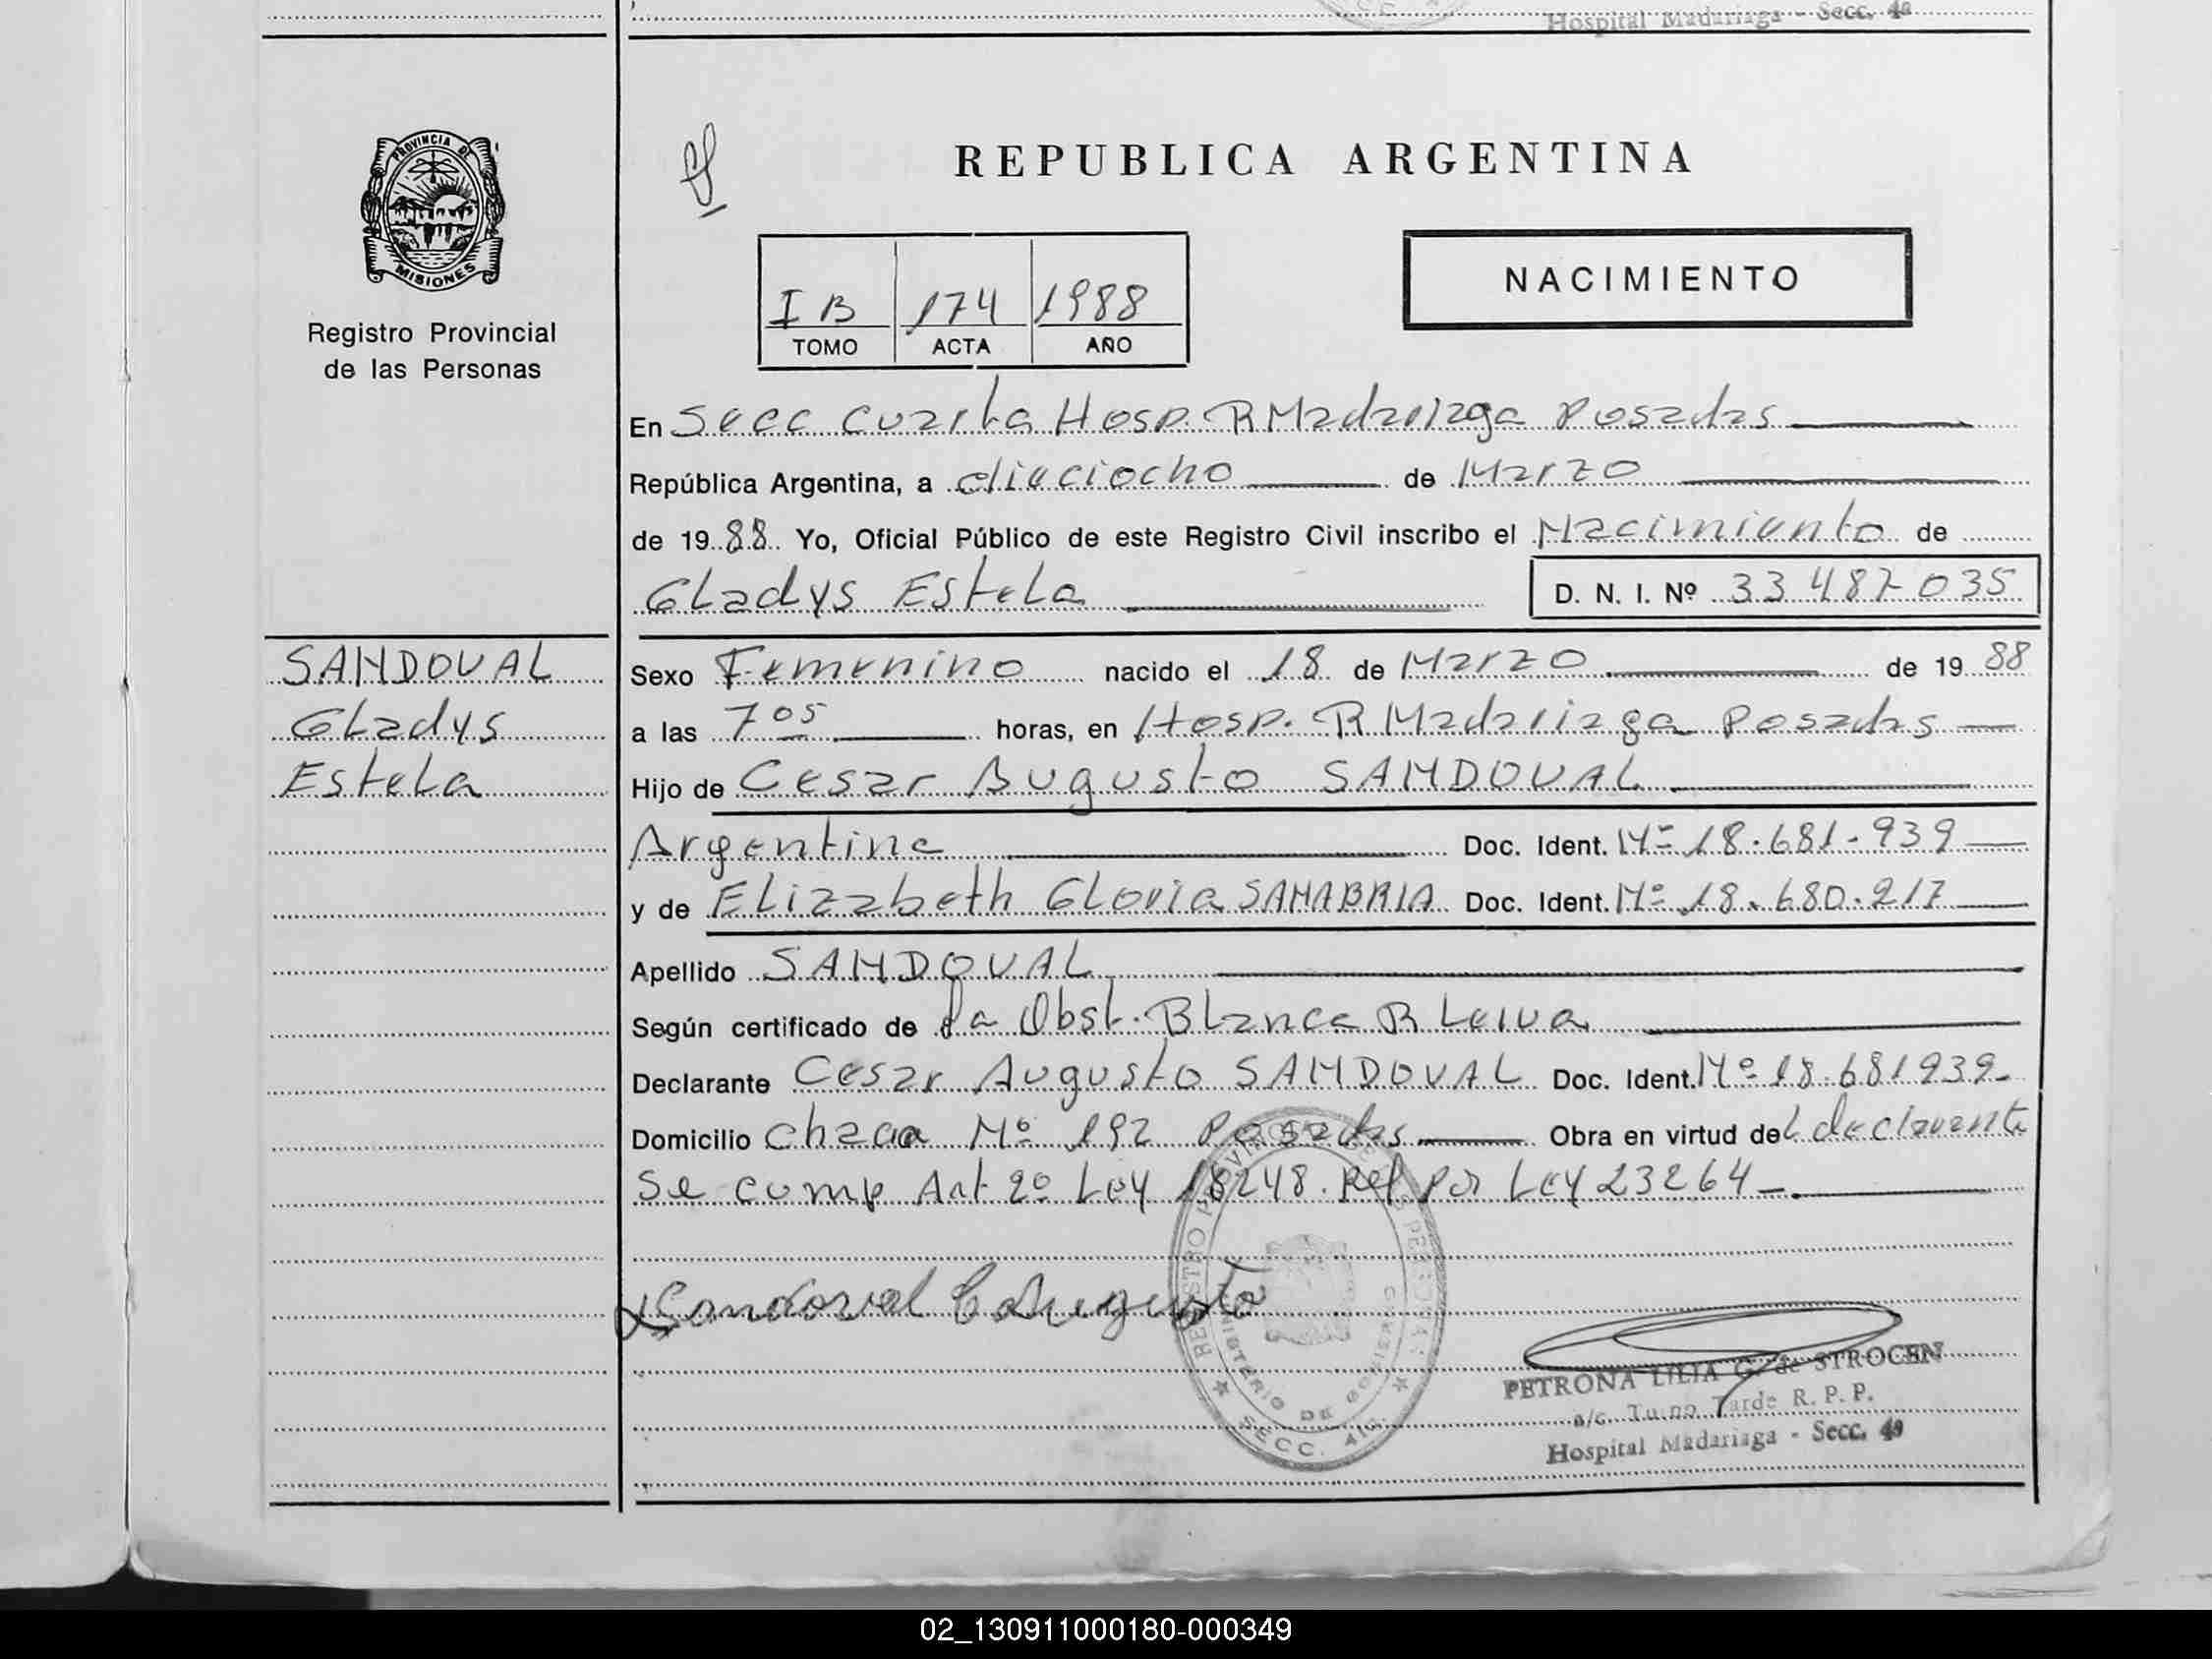 Hospital Madariaga - Secc. 4ª
PROVINCIA DE
MISIONES
Registro Provincial
de las Personas
REPUBLICA ARGENTINA
NACIMIENTO
I B 174 1988
TOMO ACTA AÑO
En Secc Cuarta Hosp. R Madariaga Posadas
República Argentina, a dieciocho de Marzo
de 1988 Yo, Oficial Público de este Registro Civil inscribo el Nacimiento de
Gladys Estela D. N. I. Nº 33 487 035
SANDOVAL
Gladys
Estela
Sexo Femenino nacido el 18 de Marzo de 1988
a las 7 05 horas, en Hosp. R Madariaga Posadas
Hijo de Cesar Augusto SANDOVAL
Argentina Doc. Ident. Nº 18.681.939
y de Elizabeth Gloria SANABRIA Doc. Ident. Nº 18.680.217
Apellido SANDOVAL
Según certificado de la Obst. Blanca R Leiva
Declarante Cesar Augusto SANDOVAL Doc. Ident. Nº 18.681939
Domicilio Chacra Nº 192 Posadas Obra en virtud del declarante
Se comp Art 2º Ley 18248. Ref por Ley 23264
Sandoval C Augusto
REGISTRO PROVINCIAL DE LAS PERSONAS
MINISTERIO DE GOBIERNO
SECC. 4ta
PETRONA LILIA G. de STROCEN
a/c. Turno Tarde R. P. P.
Hospital Madariaga - Secc. 4ª
02_130911000180-000349